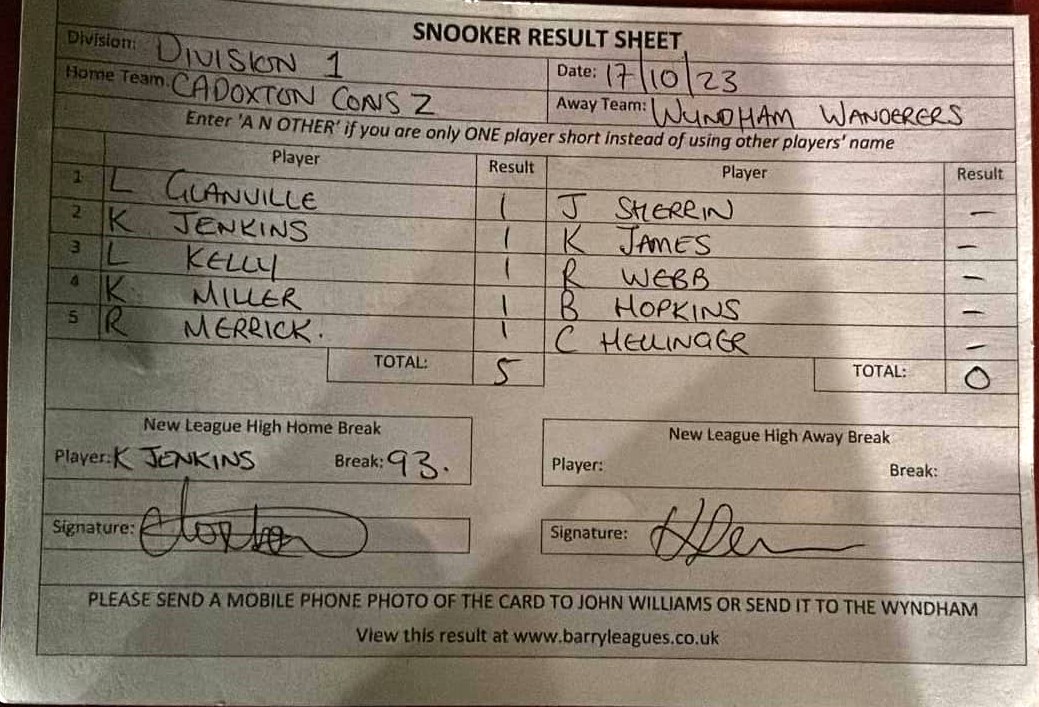 SNOOKER RESULT SHEET
Division: DIVISION 1
Date: 17/10/23
Home Team: CADOXTON CONS 2
Away Team: WYNDHAM WANDERERS
Enter 'A N OTHER' if you are only ONE player short instead of using other players' name
Player Result Player Result
1 L GLANVILLE 1 J SHERRIN –
2 K JENKINS 1 K JAMES –
3 L KELLY 1 R WEBB –
4 K MILLER 1 B HOPKINS –
5 R MERRICK. 1 C HELLINGER –
TOTAL: 5 TOTAL: 0
New League High Home Break
Player: K JENKINS Break: 93.
New League High Away Break
Player: Break:
Signature:
Signature:
PLEASE SEND A MOBILE PHONE PHOTO OF THE CARD TO JOHN WILLIAMS OR SEND IT TO THE WYNDHAM
View this result at www.barryleagues.co.uk